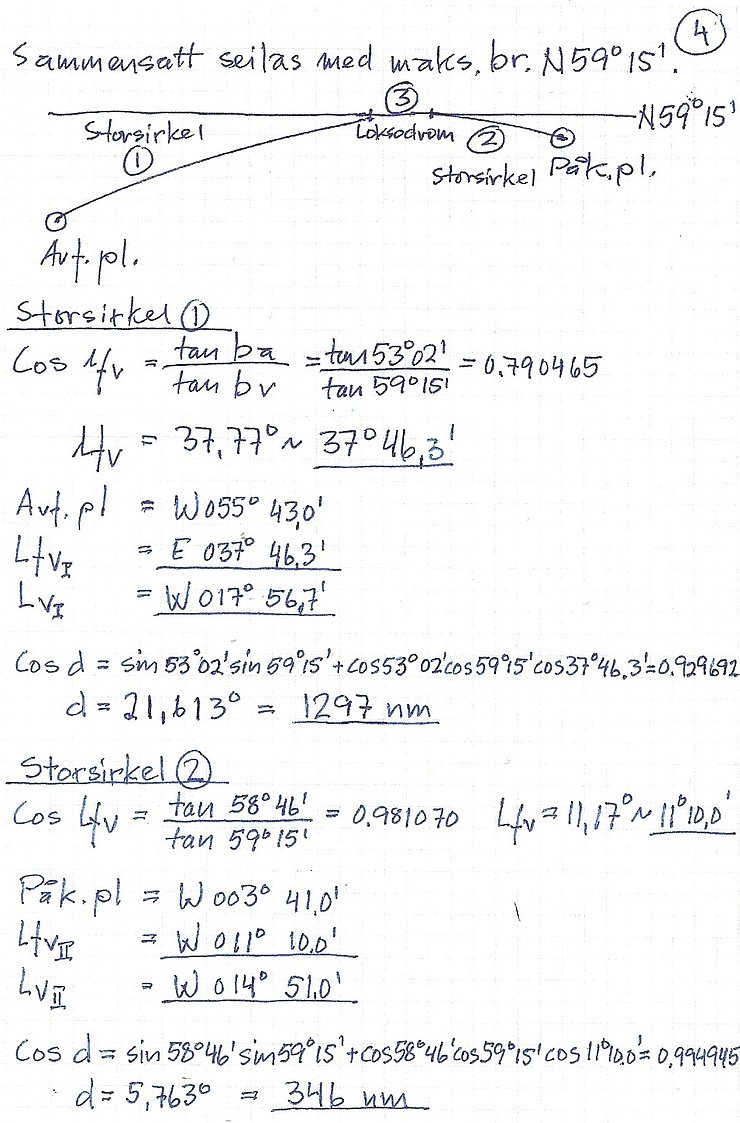 ④
Sammensatt seilas med maks. br. N59° 15'.
③
N59° 15'
Storsirkel
Loksodrom
①
②
Storsirkel
Påk. pl.
Avf. pl.
Storsirkel ①
Cos Lfv = tan ba / tan bv = tan 53° 02' / tan 59° 15' = 0.790465
Lfv = 37,77° ~ 37° 46,3'
Avf. pl = W055° 43,0'
LfvI = E 037° 46,3'
LvI = W 017° 56,7'
Cos d = sin 53° 02' sin 59° 15' + cos 53° 02' cos 59° 15' cos 37° 46,3' = 0,929692
d = 21,613° = 1297 nm
Storsirkel ②
Cos Lfv = tan 58° 46' / tan 59° 15' = 0.981070 Lfv = 11,17° ~ 11° 10,0'
Påk. pl = W 003° 41,0'
LfvII = W 011° 10.0'
LvII = W 014° 51.0'
Cos d = sin 58° 46' sin 59° 15' + cos 58° 46' cos 59° 15' cos 11° 10.0' = 0,994945
d = 5,763° = 346 nm